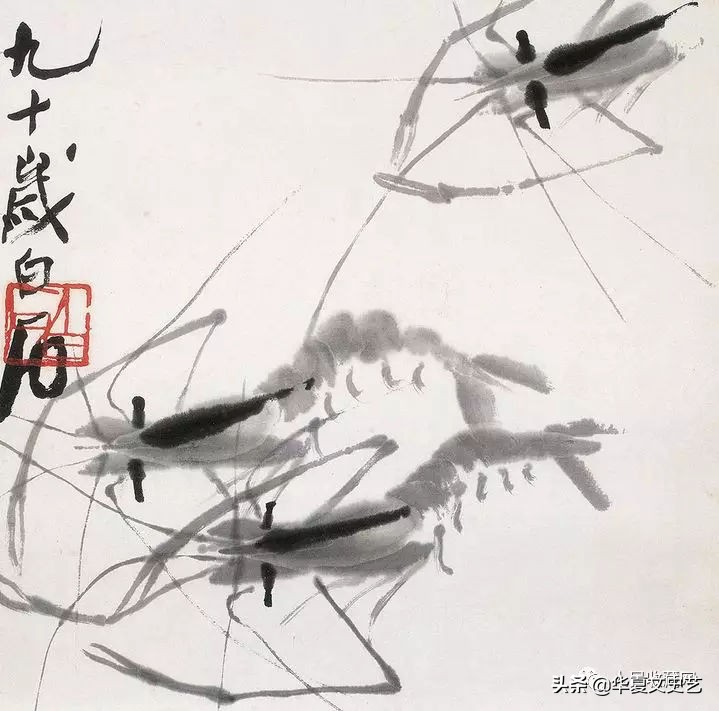 九十歲白石
头条 @华夏文史艺